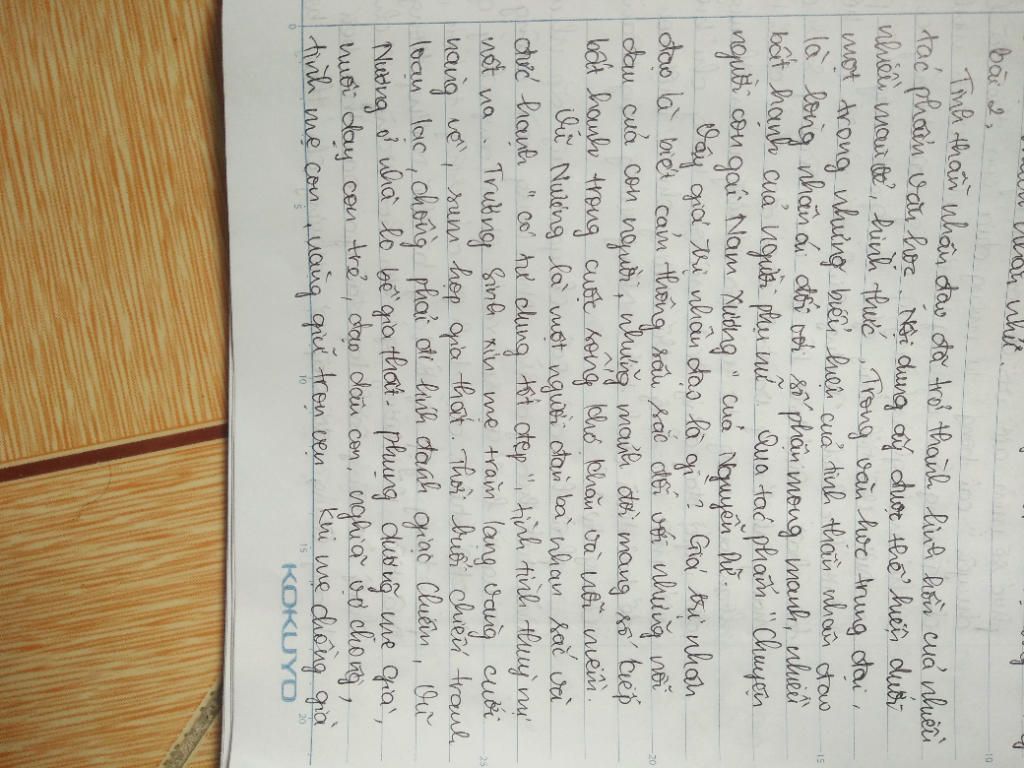 nhân nhu.
bài 2,
Tinh thần nhân đạo đã trở thành linh hồn của nhiều
tác phẩm văn học. Nội dung ấy được thể hiện dưới
nhiều màu sắc, hình thức. Trong văn học trung đại,
một trong những biểu hiện của tinh thần nhân đạo
là lòng nhân ái đối với số phận mong manh, nhiều
bất hạnh của người phụ nữ qua tác phẩm "Chuyện
người con gái Nam Xương" của Nguyễn Dữ.
Vậy giá trị nhân đạo là gì? Giá trị nhân
đạo là biết cảm thông sâu sắc đối với những nỗi
đau của con người, những mảnh đời mang số kiếp
bất hạnh trong cuộc sống khó khăn và nổi niềm.
Vũ Nương là một người đàn bà nhan sắc và
đức hạnh "có tư dung tốt đẹp", tính tình thuỳ mị
nết na. Trương Sinh xin mẹ trăm lạng vàng cưới
nàng về, sum họp gia thất. Thời buổi chiến tranh
loạn lạc, chồng phải đi lính đánh giặc Chiêm, Vũ
Nương ở nhà lo bề gia thất. phụng dưỡng mẹ già,
nuôi dạy con trẻ, đạo dâu con, nghĩa vợ chồng,
tình mẹ con, nàng giữ trọn vẹn. Khi mẹ chồng già
KOKUYO